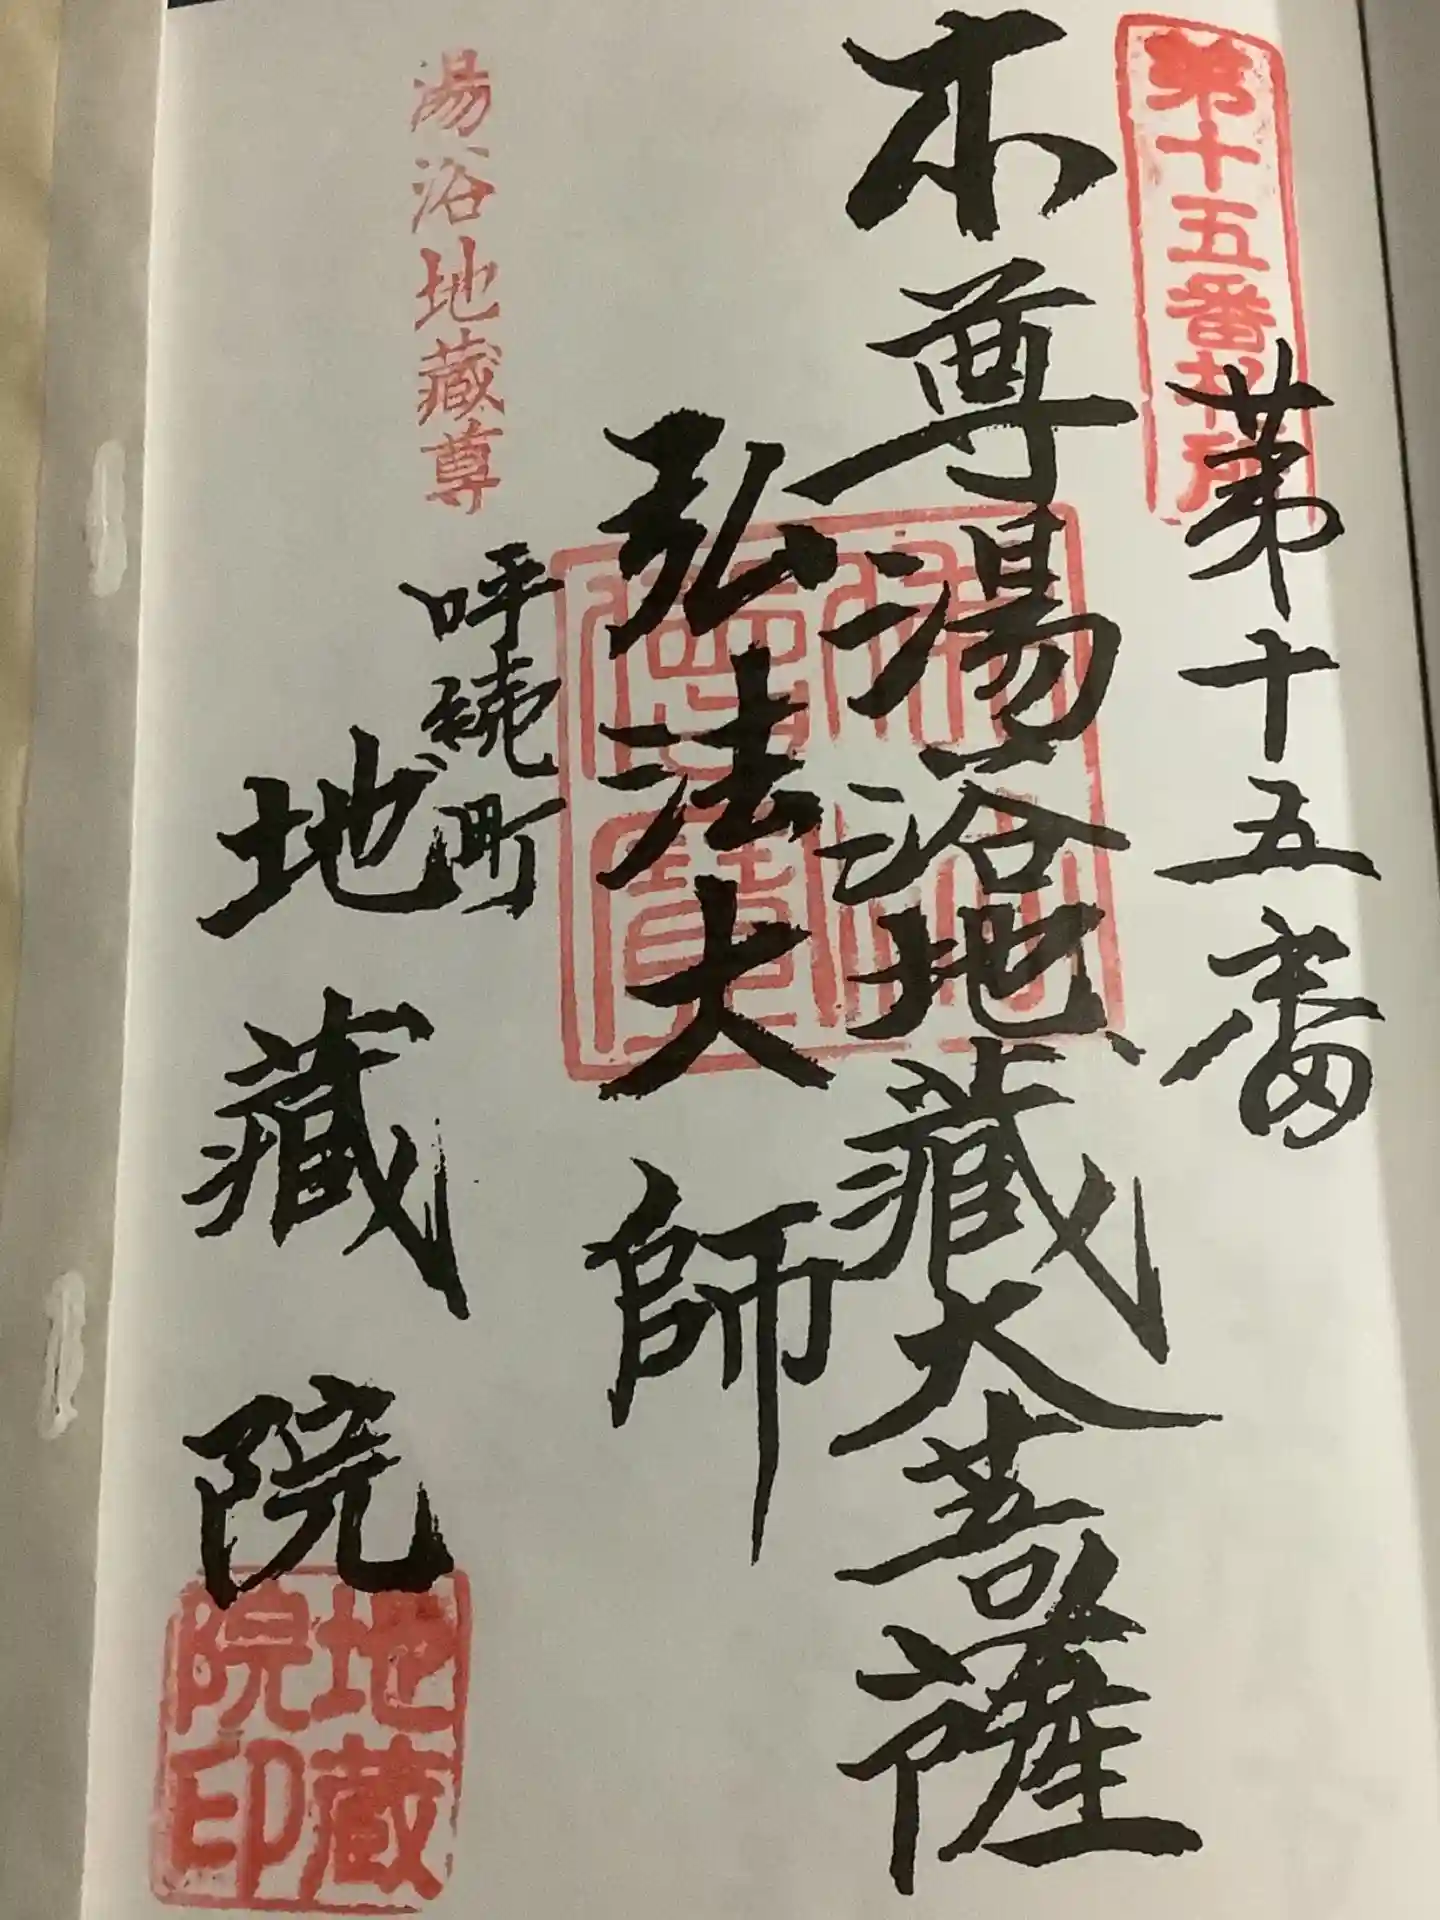 第十五番札所
第十五番
本尊湯浴地蔵大菩薩
弘法大師
湯浴地蔵尊
呼続町
地蔵院
地蔵
院印